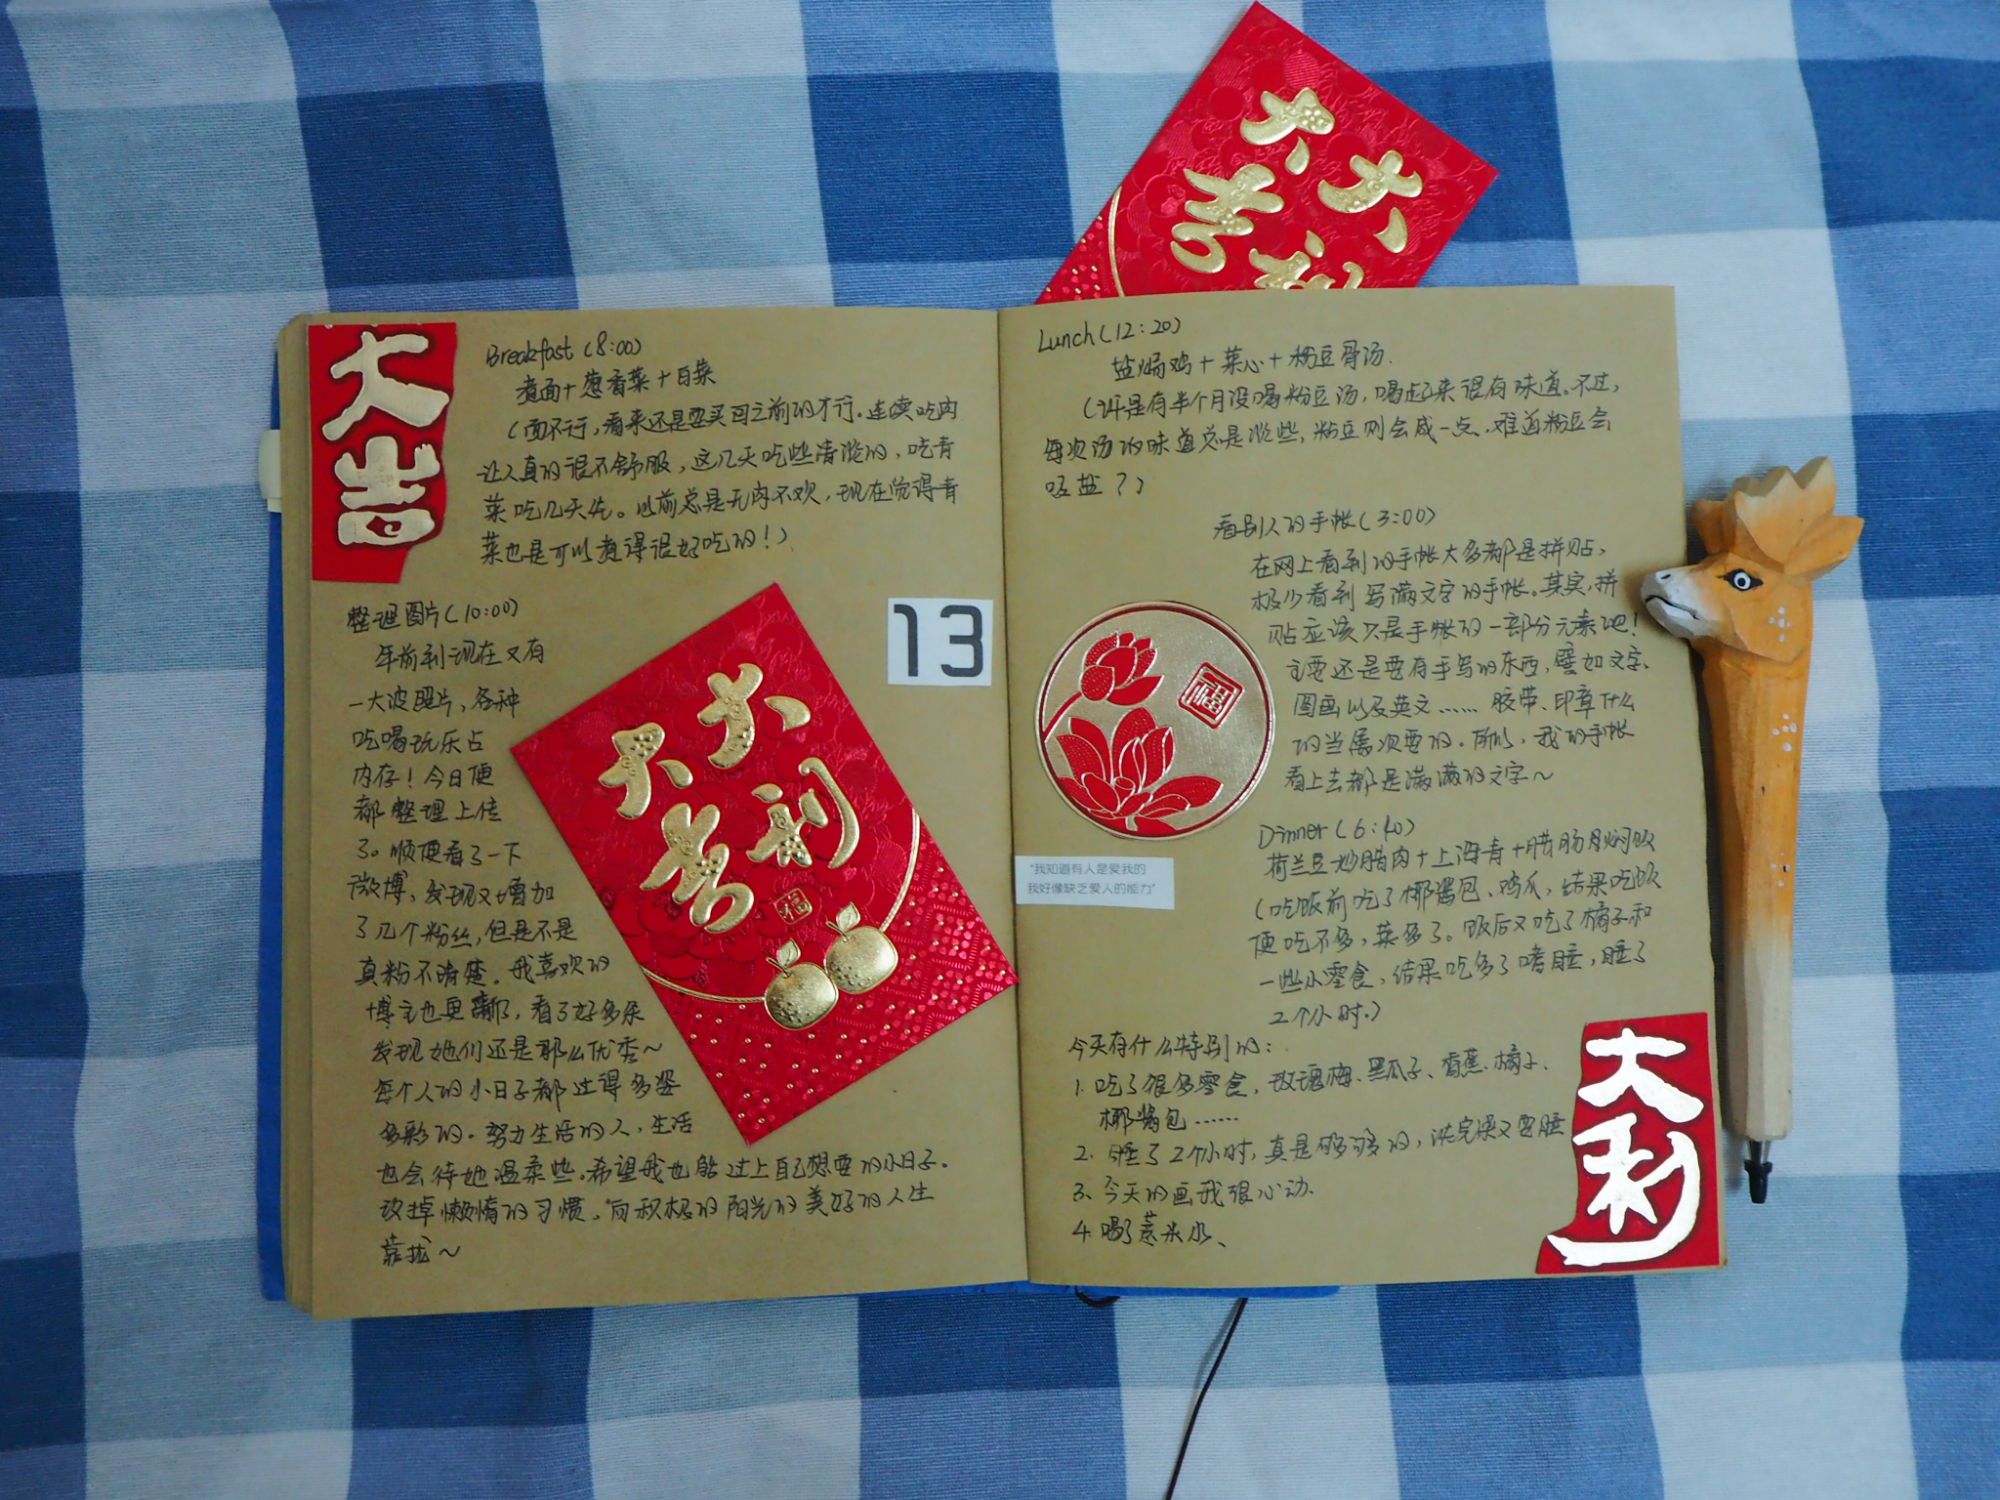 大吉
Breakfast (8:00)
煮面+葱香菜+白菜
(面不行,看来还是要买回之前的才行。连续吃肉
让人真的很不舒服,这几天吃些清淡的,吃青
菜吃几天先。以前总是无肉不欢,现在觉得青
菜也是可以煮得很好吃的!)
整理图片(10:00)
年前到现在又有
一大波照片、各种
吃喝玩乐占
内存!今日便
都整理上传
了。顺便看了一下
微博,发现又增加
了几个粉丝,但是不是
真粉不清楚。我喜欢的
博主也更新了,看了好多条
发现她们还是那么优秀~
每个人的小日子都过得多姿
多彩的。努力生活的人,生活
也会待她温柔些。希望我也能过上自己想要的小日子。
改掉懒惰的习惯,向积极的阳光的美好的人生
靠拢~
大吉
大利
福
13
大吉
大利
Lunch(12:20)
盐焗鸡+菜心+粉豆骨汤.
(许是有半个月没喝粉豆汤,喝起来很有味道。不过,
每次汤的味道总是淡些,粉豆则会咸一点、难道粉豆会
吸盐?)
看别人的手帐(3:00)
在网上看到的手帐大多都是拼贴,
极少看到写满文字的手帐。其实,拼
贴应该只是手帐的一部分元素吧!
主要还是要有手写的东西,譬如文字、
图画以及英文…… 胶带、印章什么
的当属次要的。所以,我的手帐
看上去都是满满的文字~
福
"我知道有人是爱我的
我好像缺乏爱人的能力"
Dinner(6:40)
荷兰豆炒腊肉+上海青+腊肠焖饭
(吃饭前吃了椰酱包、鸡爪,结果吃饭
便吃不多,菜多了。饭后又吃了橘子和
一些小零食,结果吃多了嗜睡,睡了
2个小时。)
今天有什么特别的:
1. 吃了很多零食,玫瑰梅、黑瓜子、香蕉、橘子、
椰酱包……
2. 睡了2个小时,真是够够的,洗完澡又要睡
3、今天的画我很心动.
4. 喝了薏米水、
大利